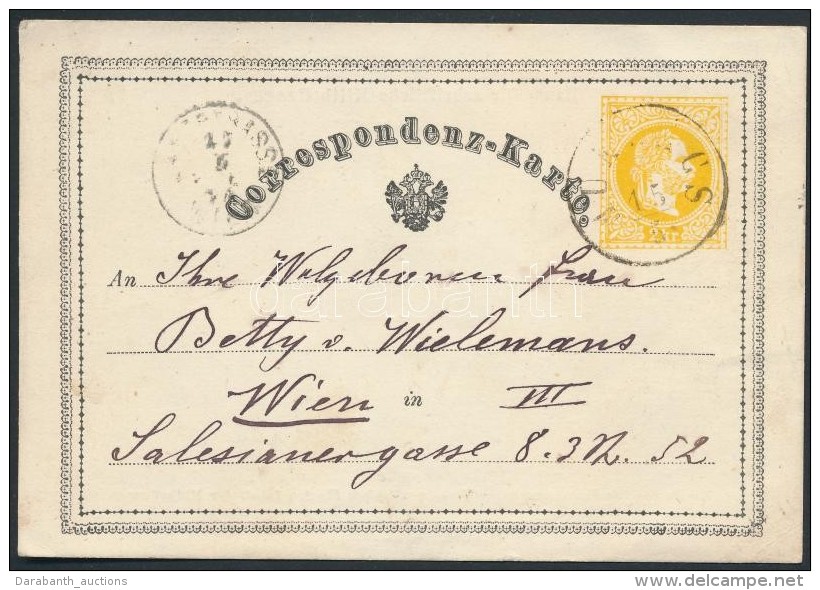 Correspondenz-Karte.
An Ihre Wolgeboren Frau
Betty v. Wielemans.
Wien in III
Salesianergasse 8. 3 N. 52
darabanth
Darabanth_auctions
delcampe.net